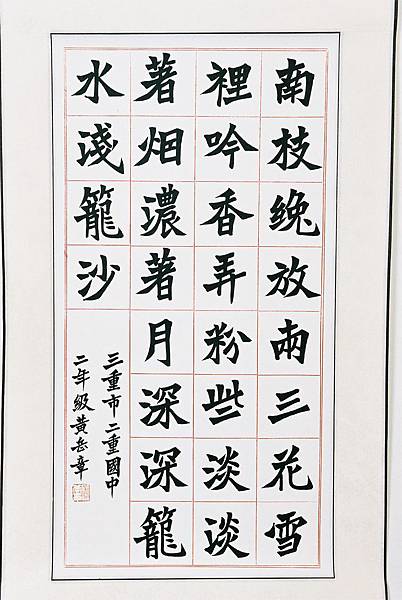 南枝纔放兩三花雪
裡吟香弄粉些淡淡
著烟濃著月深深籠
水淺籠沙
三重市二重國中
二年級黃岳章